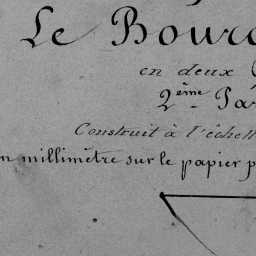 Le Bourg
en deux
2ème Par
Construit à l'échell
n millimètre sur le papier p